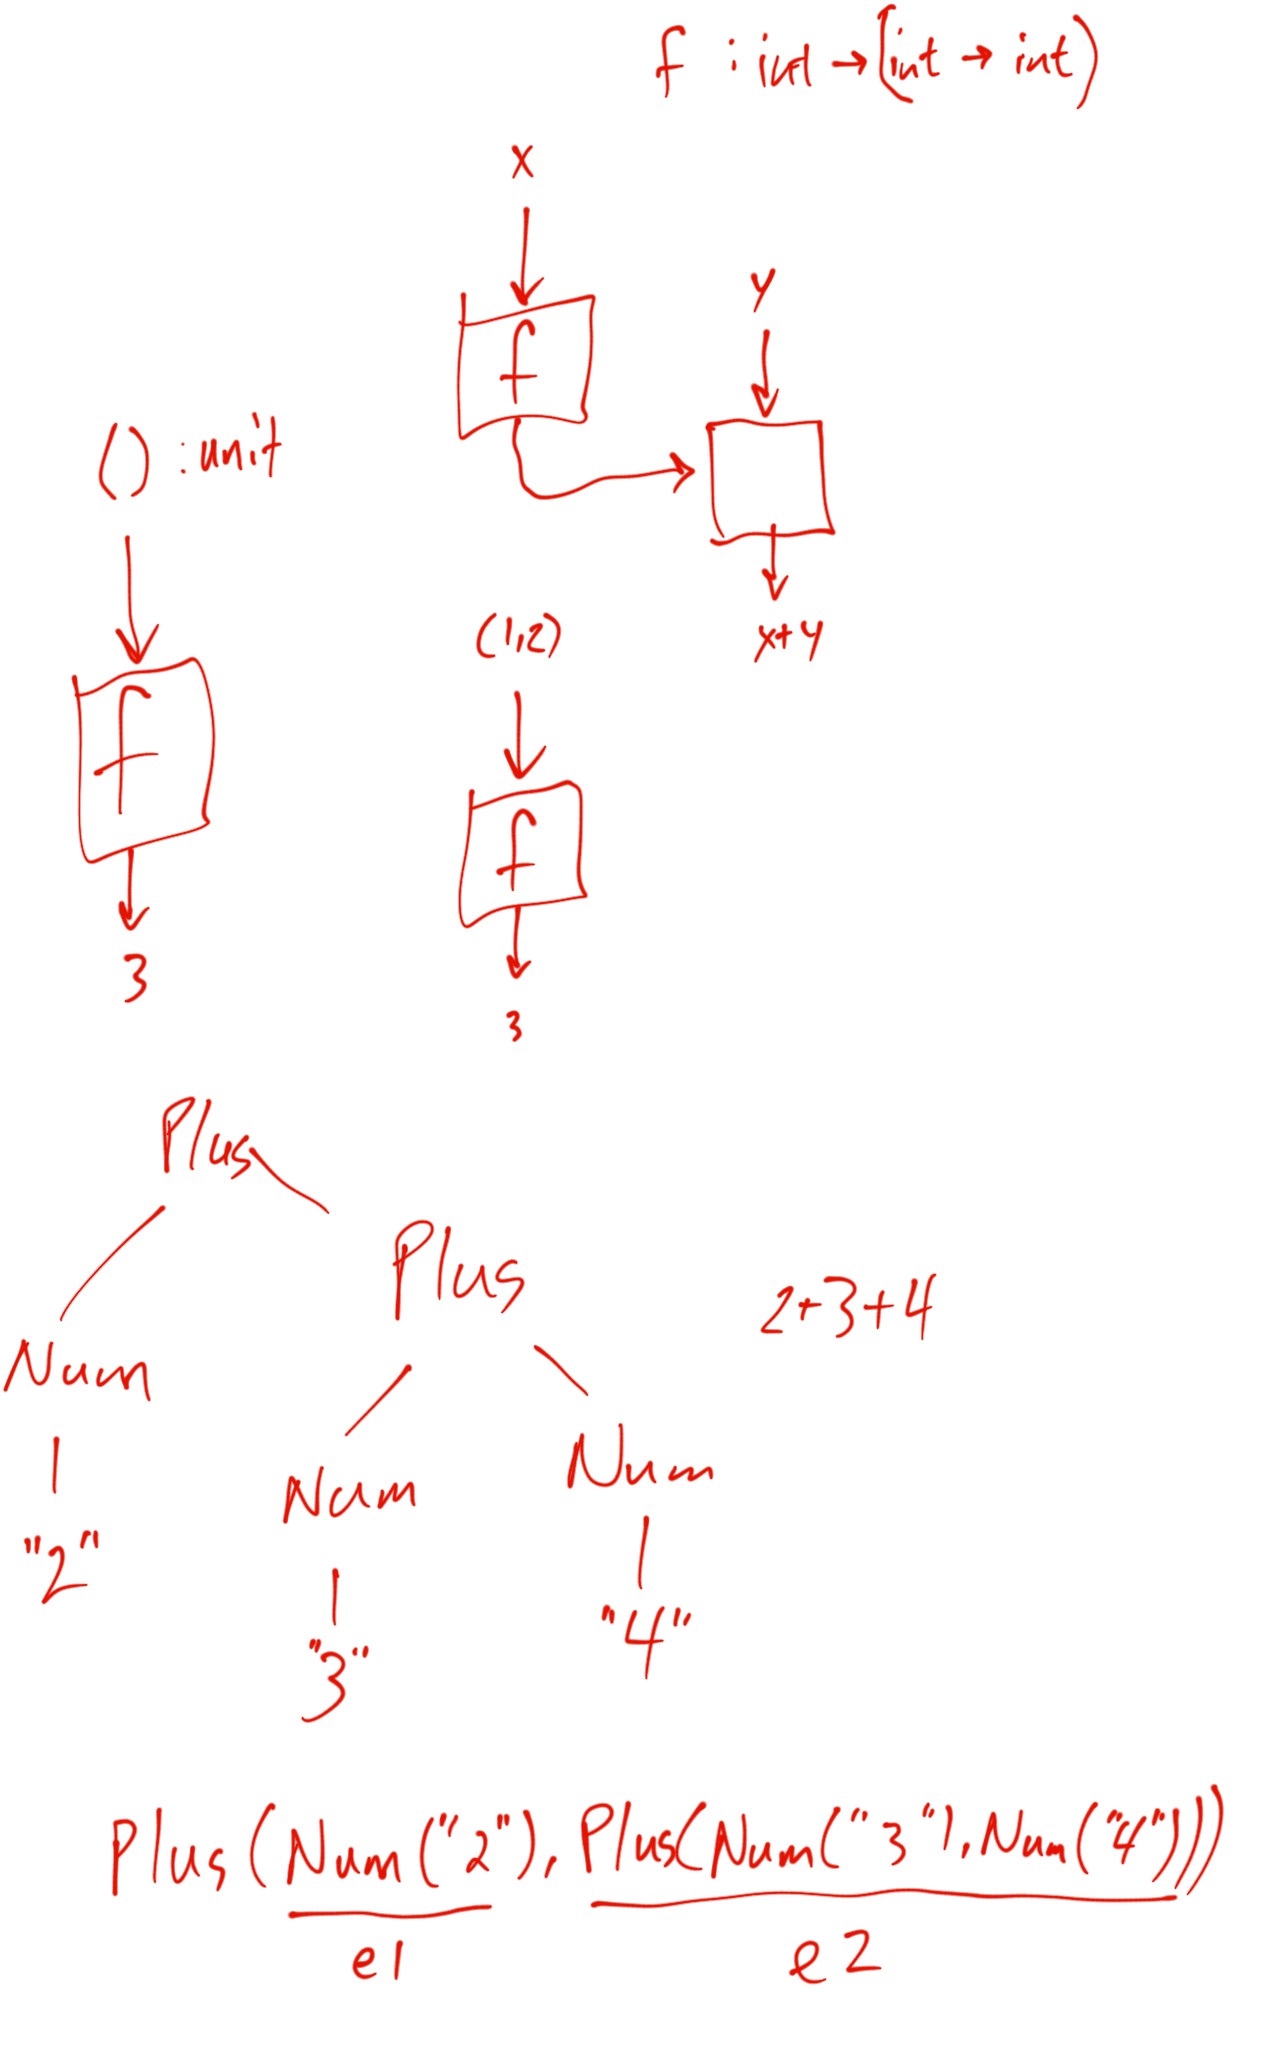 f : int → (int → int)
x
f
y
x+y
() : unit
f
3
(1,2)
f
3
Plus
Plus
2+3+4
Num
Num
Num
"2"
"3"
"4"
Plus(Num("2"), Plus(Num("3"), Num("4")))
e1
e2